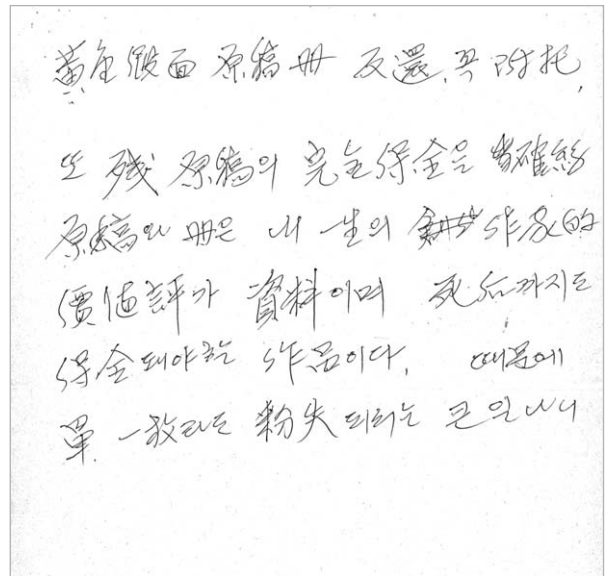 黃金假面 原稿 冊 反還, 꼭 附托,
또 残 原稿의 完全保全은
原稿와 冊은 내 一生의 作家的
價値評가 資料이며 死后까지도
保全돼야하는 作品이다. 때문에
單 一枚라도 粉失되려는 큰일나니